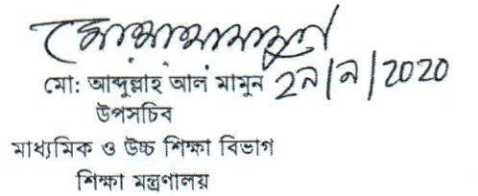 মো: আব্দুল্লাহ আল মামুন ২৯/৯/২০২০
উপসচিব
মাধ্যমিক ও উচ্চ শিক্ষা বিভাগ
শিক্ষা মন্ত্রণালয়